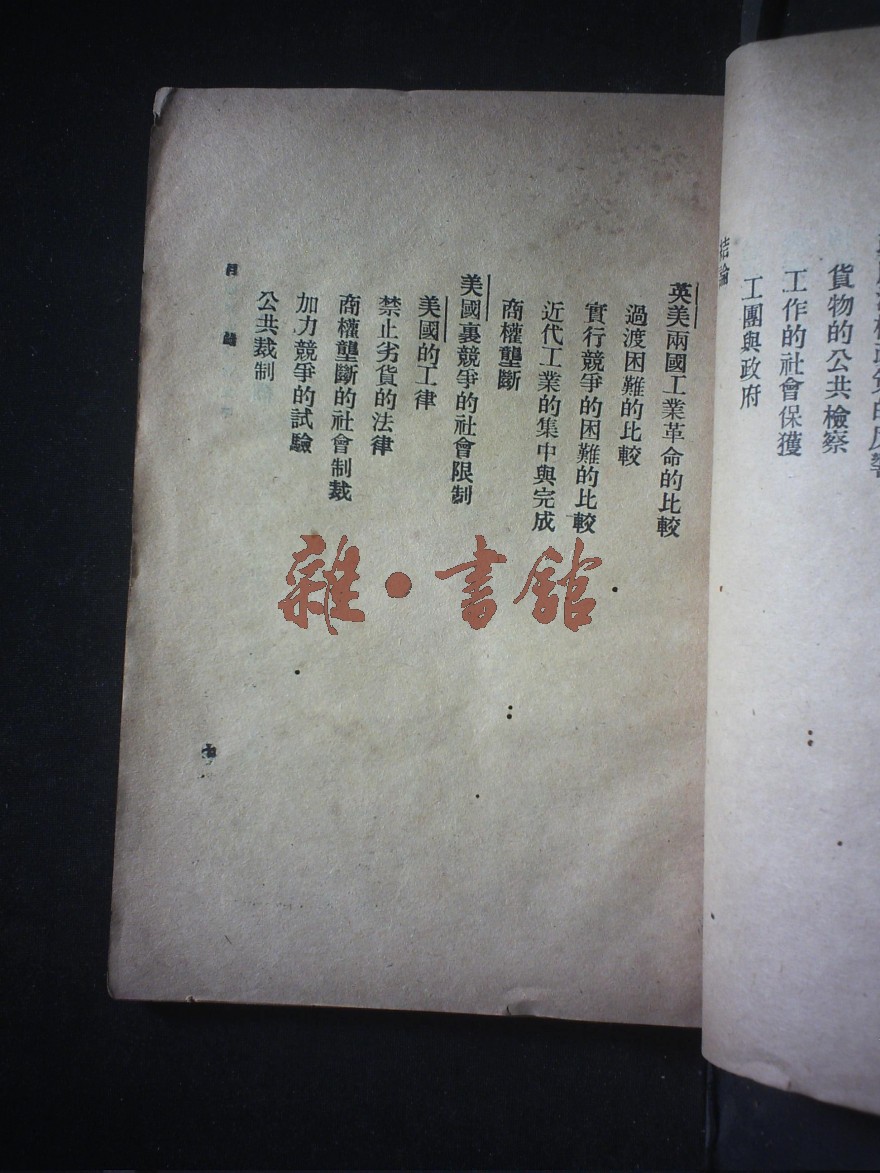 貨物的公共檢察
工作的社會保獲
工團與政府
結論
英美兩國工業革命的比較
過渡困難的比較
實行競爭的困難的比較
近代工業的集中與完成
商權壟斷
美國裏競爭的社會限制
美國的工律
禁止劣貨的法律
商權壟斷的社會制裁
加力競爭的試驗
公共裁制
目錄
七
雜·書館